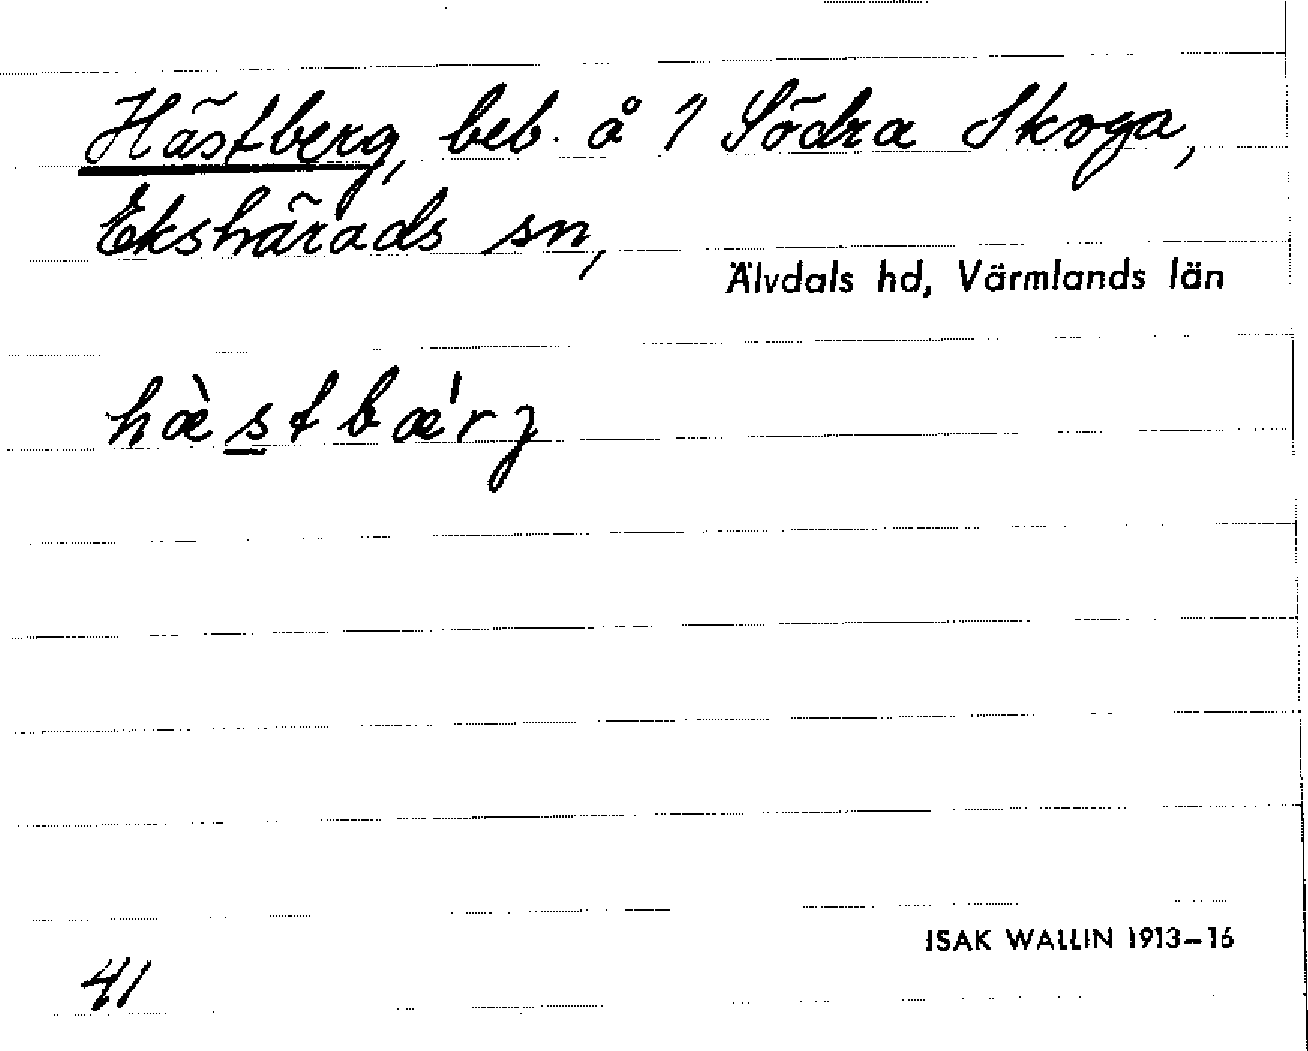 Hästberg, beb. å 1 Södra Skoga,
Ekshärads sn,
Älvdals hd, Värmlands län
hæ̀stbæ'rj
ISAK WALLIN 1913–16
41